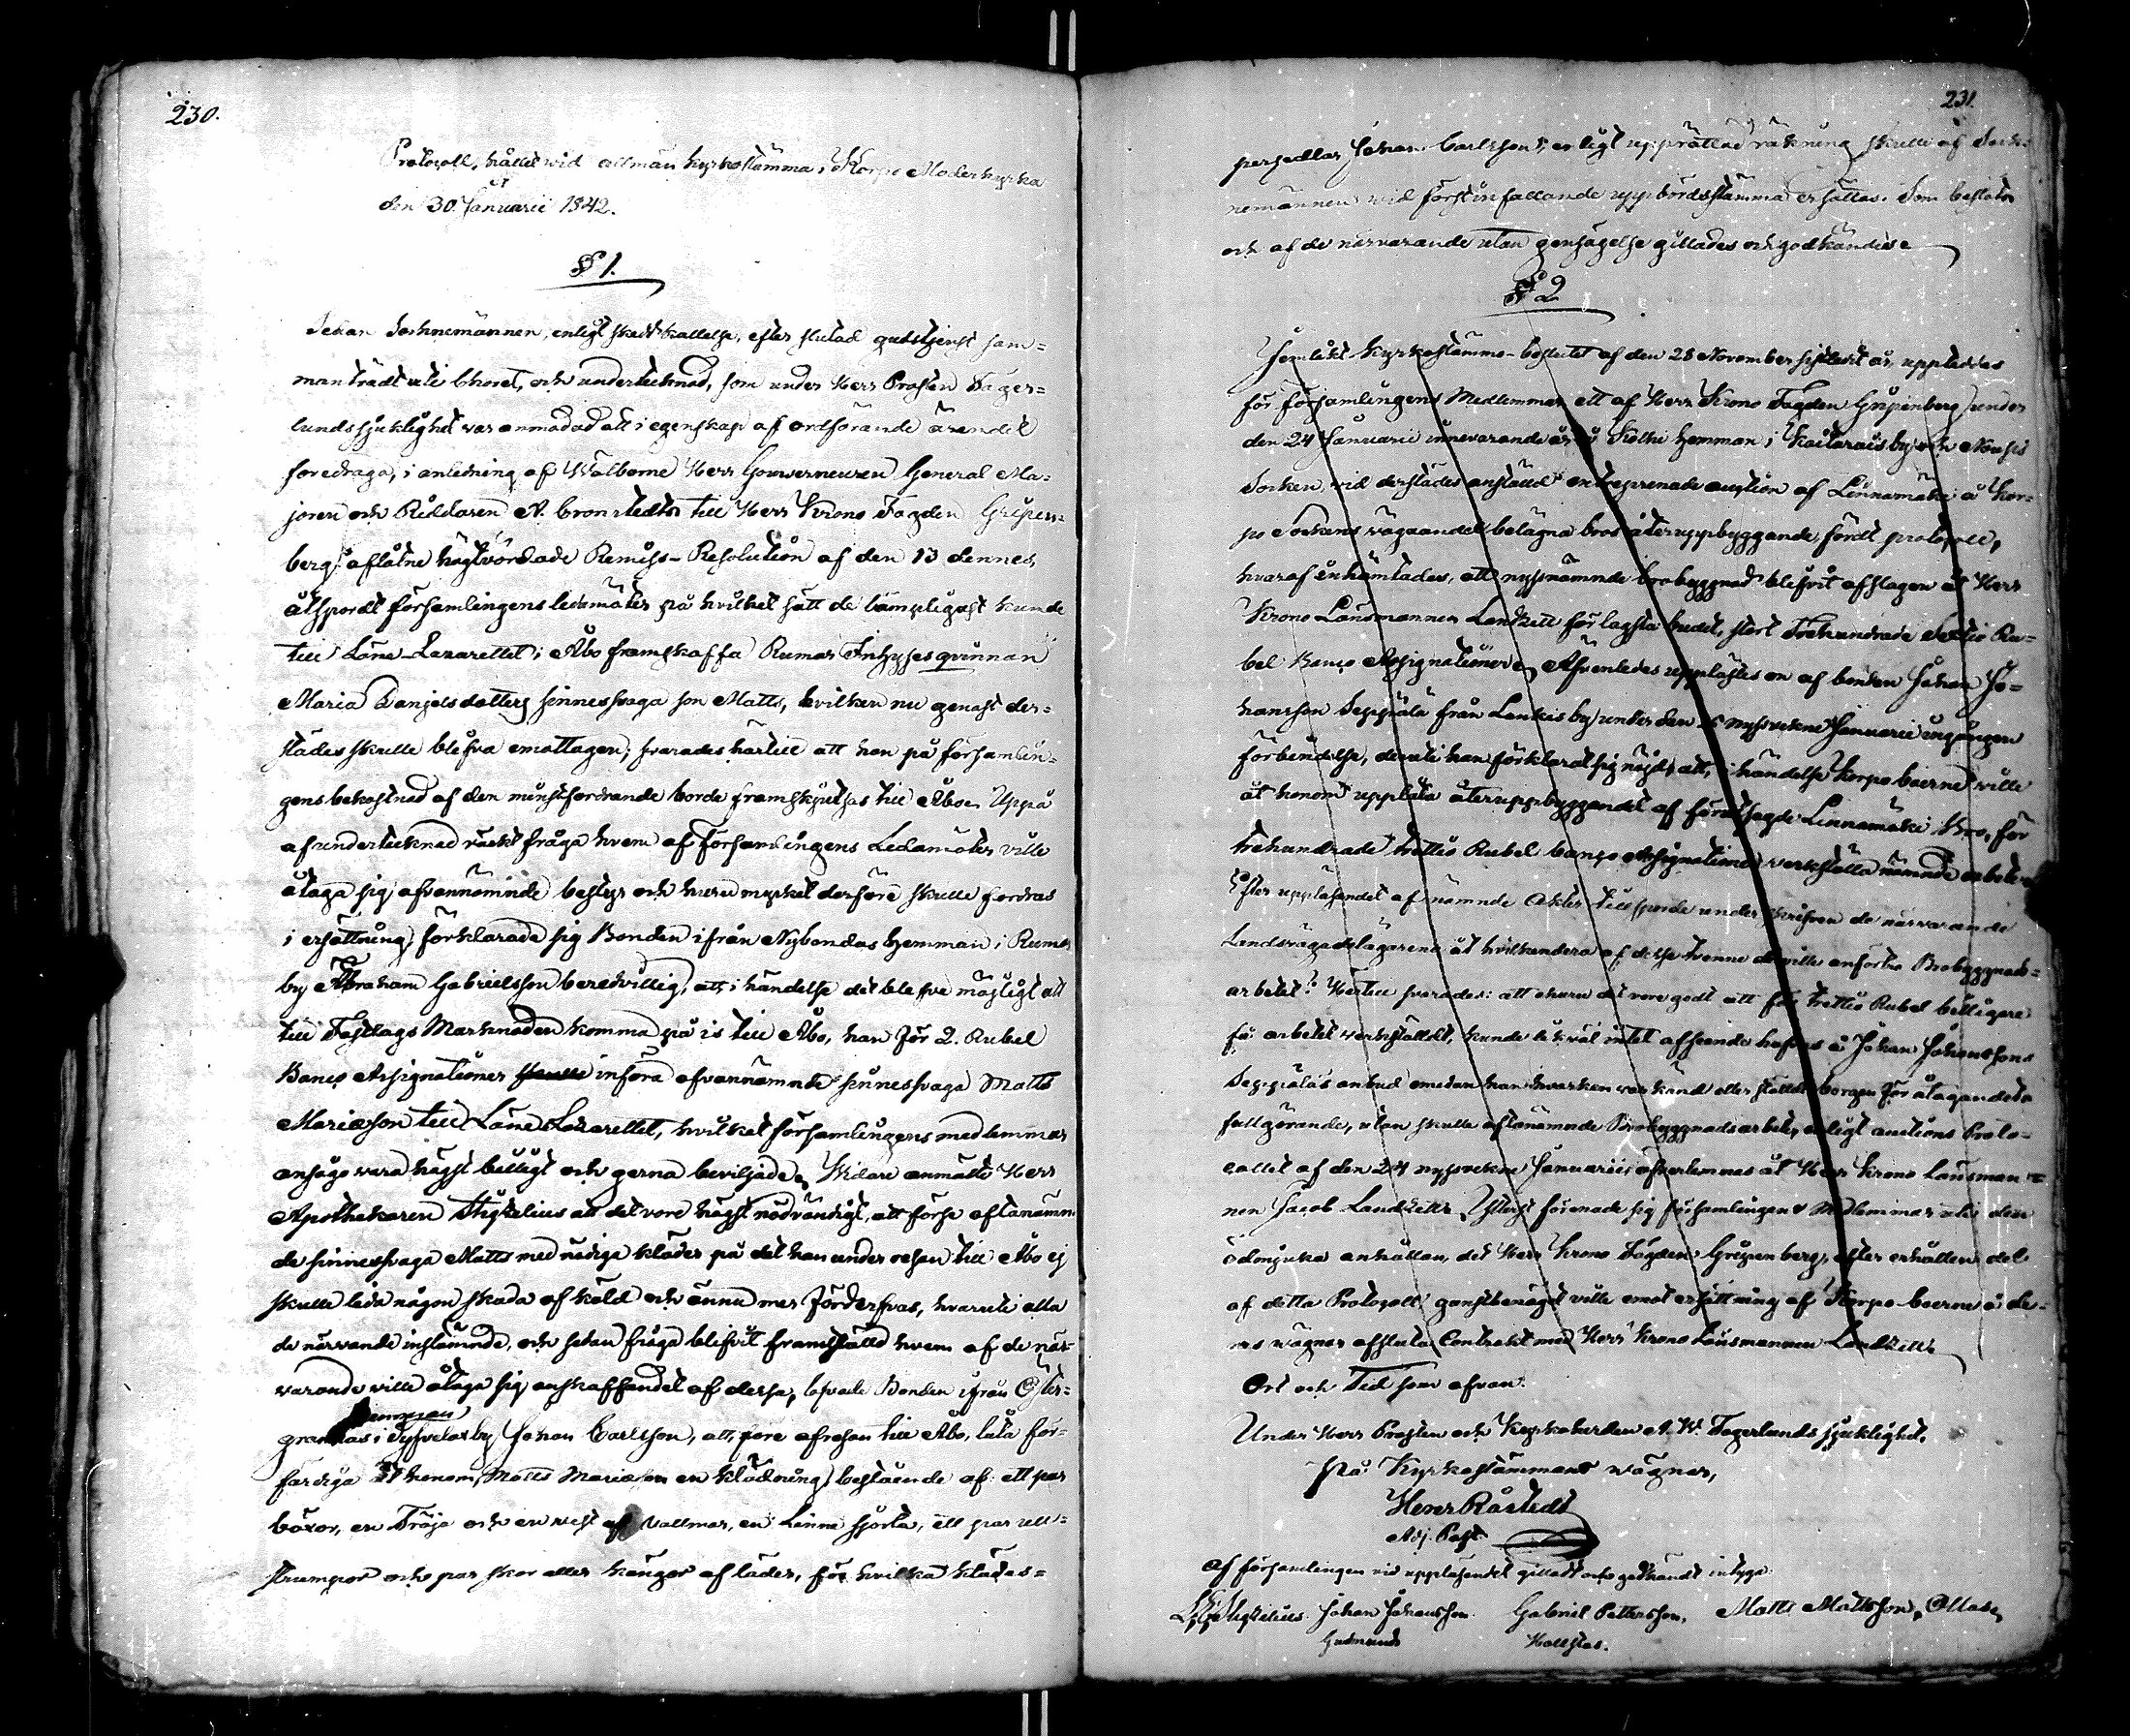 230.
Protocoll, hållit wid allmän kyrkostämma i Korpo Moderkyrka
den 30. Januarii 1842.
§ 1.
Sedan Socknemännen, enligt skedd kallelse, efter slutad gudstjenst sam=
manträdt uti Choret, och undertecknad, som under Herr Prosten Fager=
lunds sjuklighet var anmodad att i egenskap af ordförande ärendet
föredraga, i anledning af Wälborne Herr Gouverneuren General Ma=
joren och Riddaren A. Cronstedts till Herr Krono Fogden Gripen=
berg aflåtne högtvördade Remiss-Resolution af den 13 dennes,
åtspordt församlingens ledamöter på hvilket sätt de lämpligast kunde
till Läns-Lazarettet i Åbo framskaffa Rumar Inhysesqvinnan
Maria Danielsdotters sinnessvaga son Matts, hvilken nu genast der=
städes skulle blifva emottagen; svarades härtill att han på församlin=
gens bekostnad af den minstfordrande borde framskjutsas till Åbo. Uppå
af undertecknad väckt fråga hvem af församlingens Ledamöter ville
åtaga sig ofvannämnde bestyr och huru mycket derföre skulle fordras
i ersättning, förklarade sig Bonden ifrån Nybondas hemman i Rumar
by Abraham Gabrielsson beredvillig, att, i händelse det blefve möjligt att
till Fastlags Marknaden komma på is till Åbo, han för 2. Rubel
Banco Assignationer införa ofvannämnde sinnessvaga Matts
Mariæson till Läns Lazarettet, hvilket församlingens medlemmar
ansågo vara högst billigt och gerna beviljade. Widare anmälte Herr
Apothekaren Stigzelius att det vore högst nödvändigt, att förse oftanämn
de sinnessvaga Matts med nödige kläder på det han under resan till Åbo ej
skulle lida någon skada af köld och ännu mer förderfvas, hvaruti alla
de närvarande instämde, och sedan fråga blifvit framställd hvem af de när=
varande ville åtaga sig anskaffandet af dessa, lofvade Bonden ifrån Öster=
hemman
grannas i Tyfvelax by Johan Carlsson, att, före afresan till Åbo, låta för=
färdiga åt honom, Matts Mariæson en klädning bestående af: ett par
böxor, en Tröja och en west af vallmar, en Linne skjorta, ett par ull=
strumpor och par skor eller kängor af läder, för hvilka klädes=
231.
persedlar Johan Carlsson, enligt upprättad räkning skulle af Sock=
nemännen vid förstinfallande uppbördsstämma ersättas. Som beslöts
och af de närvarande utan gensägelse gillades och godkändes.
§ 2
Jemlikt Kyrkostämmo-beslutet af den 28 November sistledit år, upplästes
för församlingens Medlemmar ett af Herr Krono Fogden Gripenberg under
den 24 Januarii innevarande år å hemman i Kaitarais by och Nousis
Socken, vid derstädes anställd entreprenade auction af Linnamäki å Kor=
po Sockens vägaandel belägna bros återuppbyggande fördt protocoll,
hvaraf inhämtades, att nyssnämnde brobyggnad blifvit afslagen åt Herr
Krono Länsmannen Landzett för lägsta budet, stort Trehundrade Sextio Ru=
bel Banco Assignationer. Äfvenledes upplästes en af bonden Johan Jo=
hansson Seppälä från Lankis by under den nyssvekne Januarii ingången
förbindelse, deruti han förklarat sig nöjd, att, i händelse Korpo boerne ville
åt honom upplåta återuppbyggandet af förutsagde Linnamäki Bro, för
trehundrade trettio Rubel banco Assignationer verkställa nämnde arbete.
Efter uppläsandet af nämnde Akter tillsporde underskrifven de närvarande
Landsvägadelägarena åt hvilkendera af desse tvenne de ville anförtro Brobyggnads=
arbetet? Hertill svarades: att ehuru det vore godt att för trettio Rubel billigare
få arbetet verkställdt, kunde likväl intet afseende hafvas å Johan Johanssons
Seppäläs anbud emedan han hvarken var känd eller ställdt borgen för åtagandets
fullgörande, utan skulle oftanämnde Brobyggnadsarbete, enligt auctions Proto=
collet af den 24 nyssvekne Januarii, öfverlemnas åt Herr Krono Länsman=
nen Jacob Landzett. Ytterst förenade sig församlingens Medlemmar uti den
ödmjuka anhållan, det Herr Krono Fogden Gripenberg, efter erhållen del
af detta Protocoll gunstbenäget ville emot ersättning af Korpo boerne å de=
ras vägnar afsluta Contrakt med Herr Krono Länsmannen Landzett.
Ort och Tid som ofvan.
Under Herr Prosten och Kyrkoherden A. W. Fagerlunds sjuklighet.
På Kyrkostämmans wägnar,
Henr Råstedt
Adj. Past.
Af församlingen vid uppläsandet gilladt och godkändt intyga:
Stigzelius. Johan Johansson. Gabriel Pettersson, Matts Mattsson,
Gudmunds Hallstas.